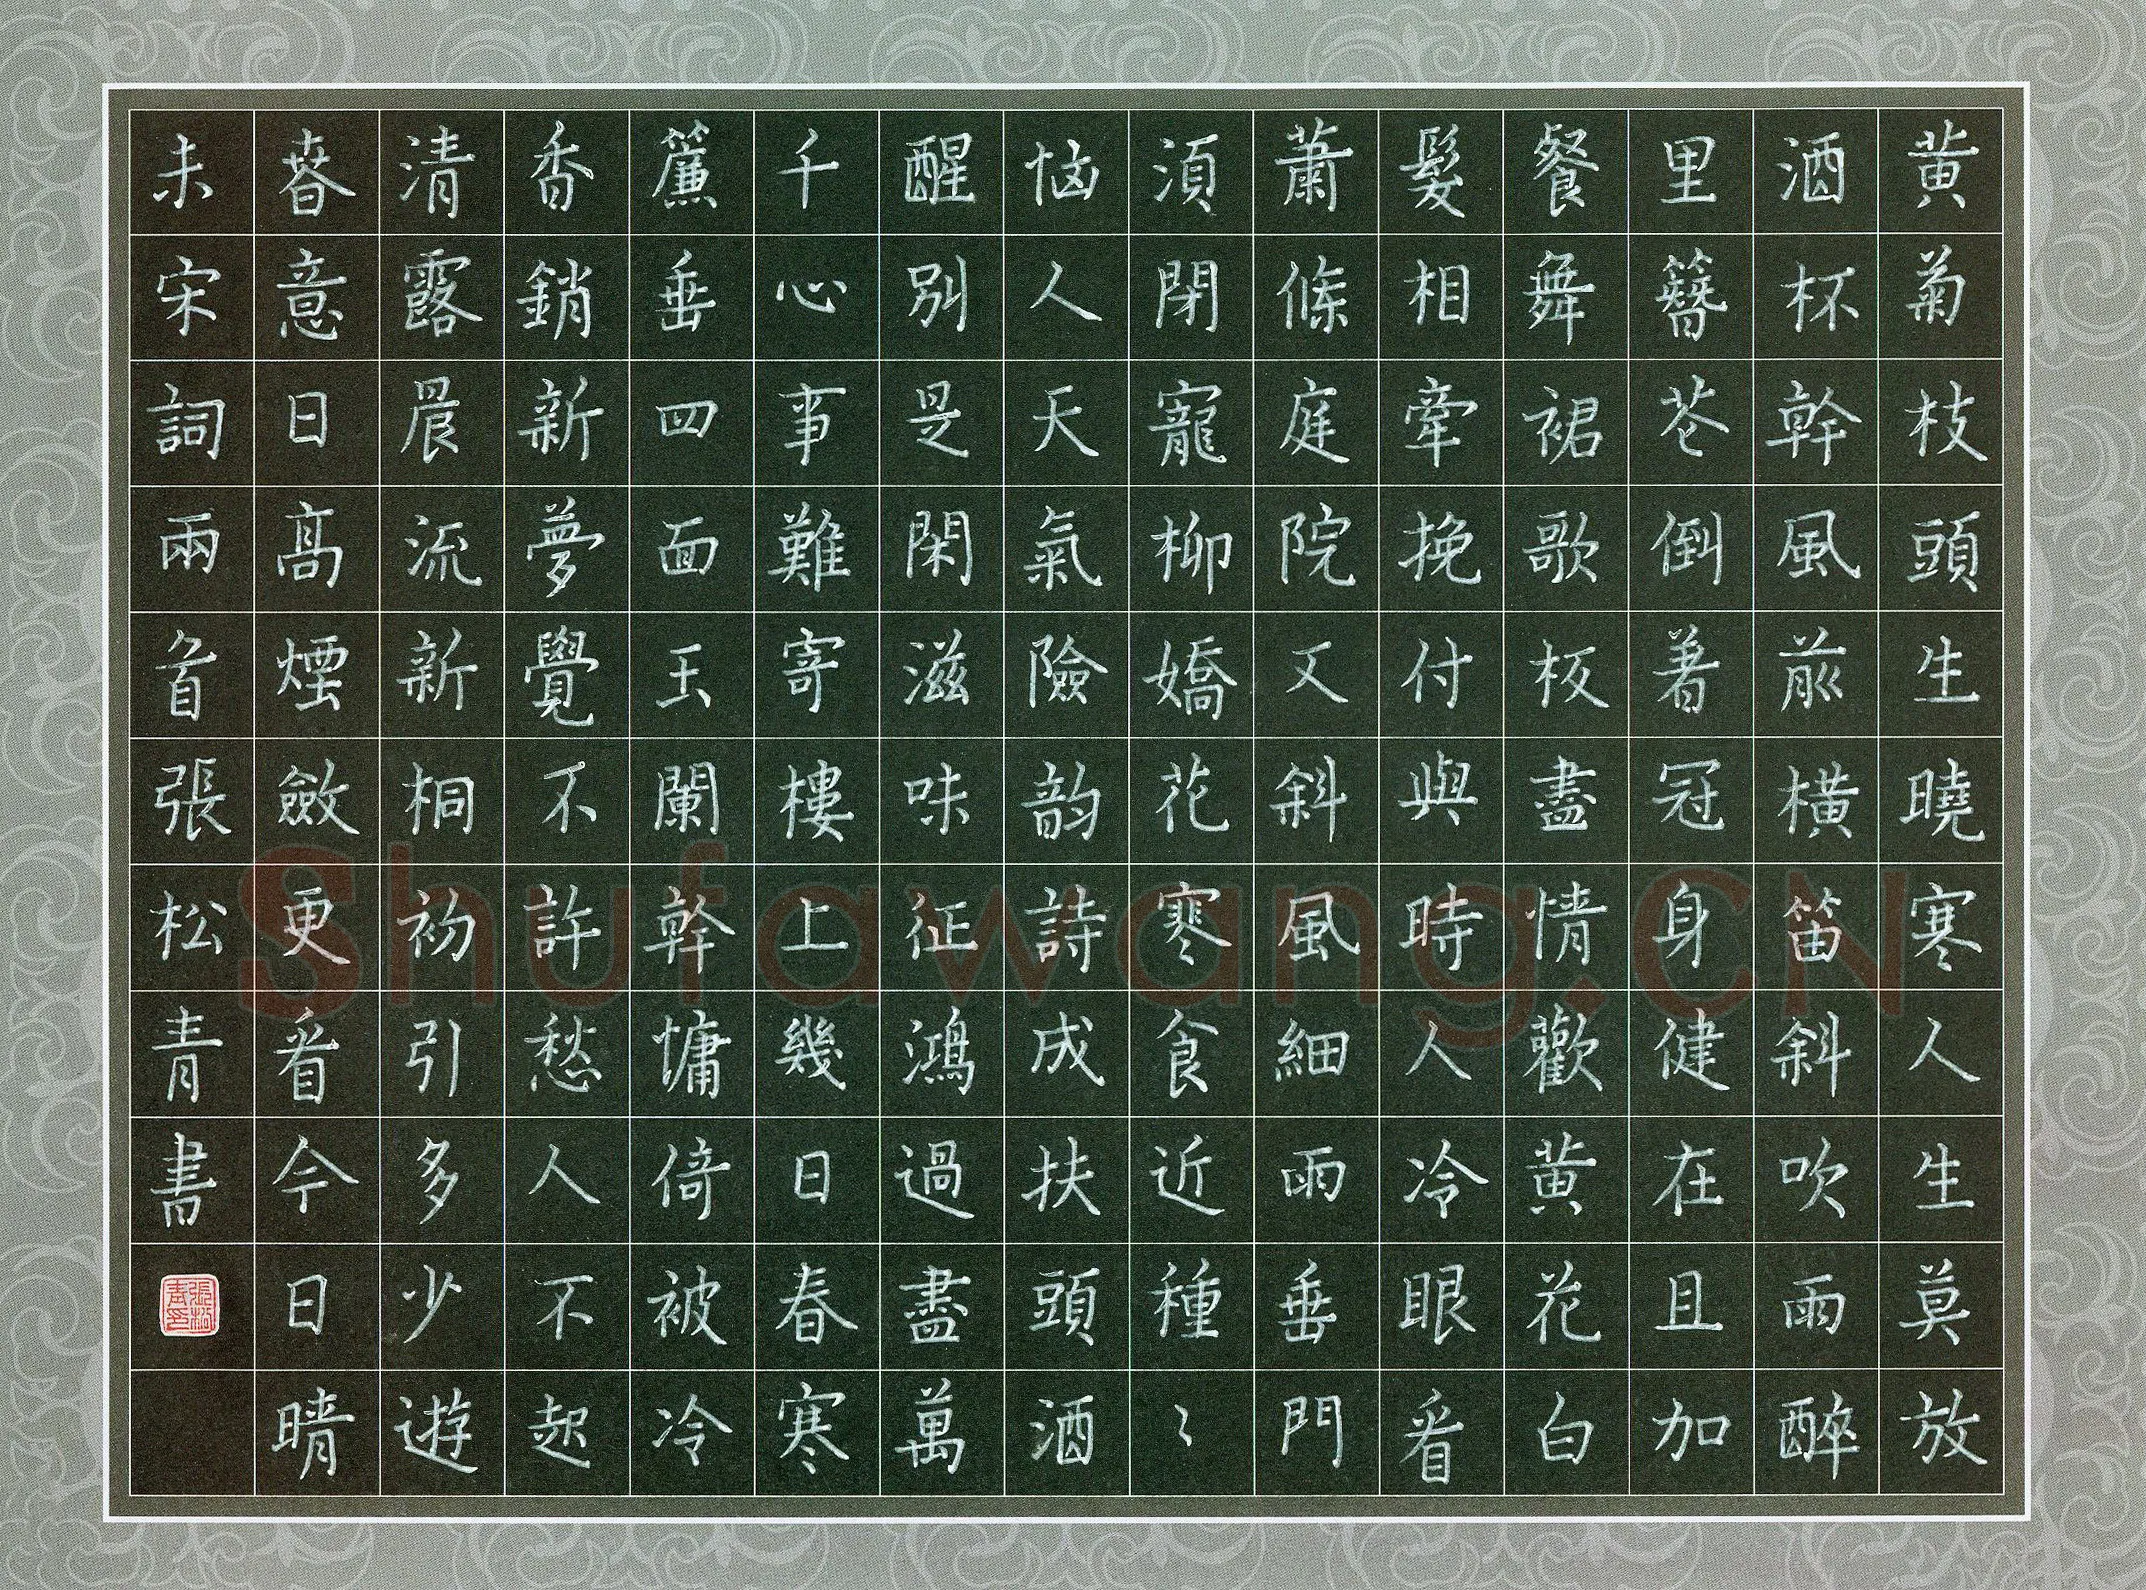 黃菊枝頭生曉寒人生莫放
酒杯幹風前橫笛斜吹雨醉
里簪花倒著冠身健在且加
餐舞裙歌板盡情歡黃花白
髮相牽挽付與時人冷眼看
蕭條庭院又斜風細雨垂門
須閉寵柳嬌花寒食近種〻
惱人天氣險韵詩成扶頭酒
醒別是閑滋味征鴻過盡萬
千心事難寄樓上幾日春寒
簾垂四面玉闌幹慵倚被冷
香銷新夢覺不許愁人不起
清露晨流新桐初引多少遊
春意日高煙斂更看今日晴
未宋詞兩首張松青書
張松青印
Shufawang.CN